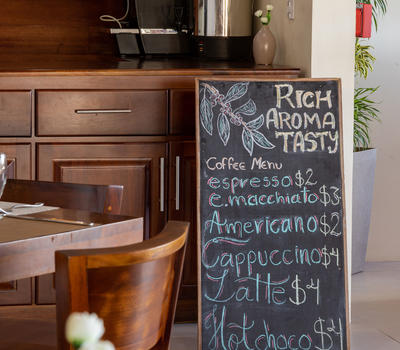 RICH
AROMA
TASTY
Coffee Menu
espresso $2
e.macchiato $3
Americano $2
Cappuccino $4
Latte $4
Hot choco $4